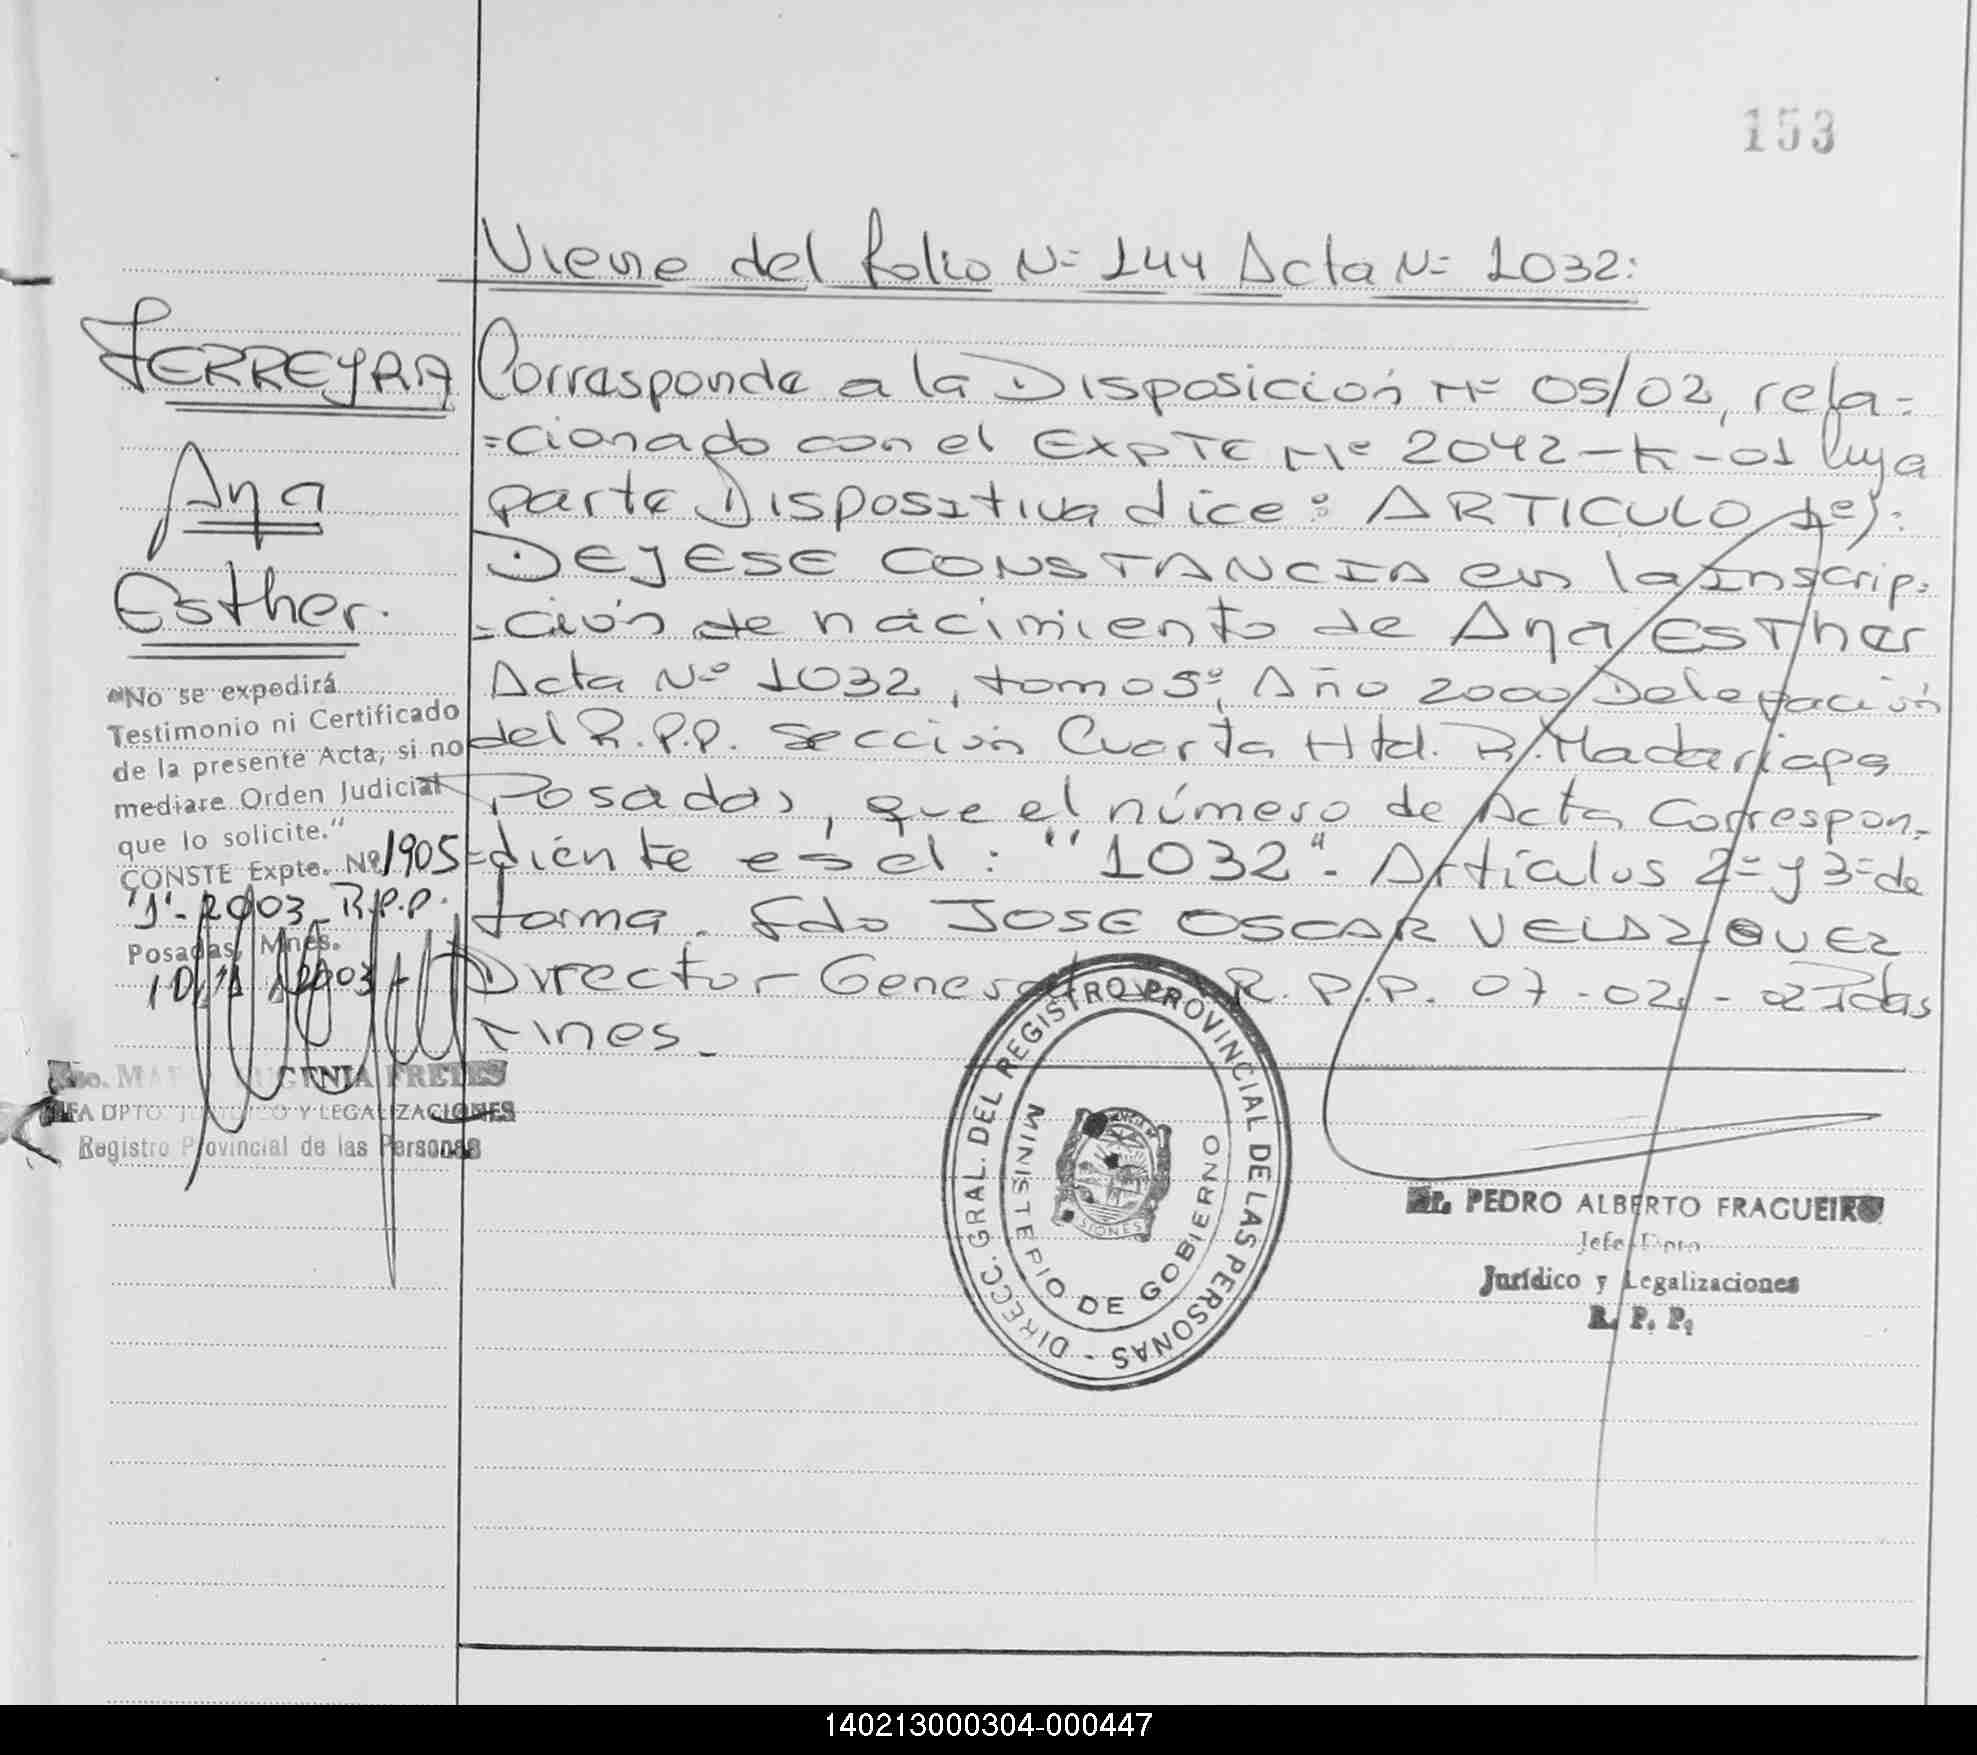 153
Viene del folio Nº 144 Acta Nº 1032:
FERREYRA
Ana
Esther.
"No se expedirá
Testimonio ni Certificado
de la presente Acta, si no
mediare Orden Judicial
que lo solicite."
CONSTE Expte. Nº 1905
"J"-2003 R.P.P.
Posadas, Mnes.
10/11/2003
EUGENIA FRETES
DPTO. JURIDICO Y LEGALIZACIONES
Registro Provincial de las Personas
Corresponde a la Disposición Nº 05/02, rela=
=cionado con el EXPTE Nº 2042-K-01 Cuya
parte Dispositiva dice: ARTICULO 1º):
DEJESE CONSTANCIA en la Inscrip=
=ción de nacimiento de Ana Esther
Acta Nº 1032, tomo 5º, Año 2000 Delegación
del R.P.P. Sección Cuarta Htal. R. Madariaga
Posadas, que el número de Acta Correspon=
=diente es el: "1032". Artículos 2º y 3º de
forma. Fdo JOSE OSCAR VELAZQUEZ
Director General R.P.P. 07-02-02 Pdas
Mnes.
DIRECC. GRAL. DEL REGISTRO PROVINCIAL DE LAS PERSONAS -
MINISTERIO DE GOBIERNO
SIONES
PEDRO ALBERTO FRAGUEIRO
Jefe Dpto
Jurídico y Legalizaciones
R. P. P.
140213000304-000447